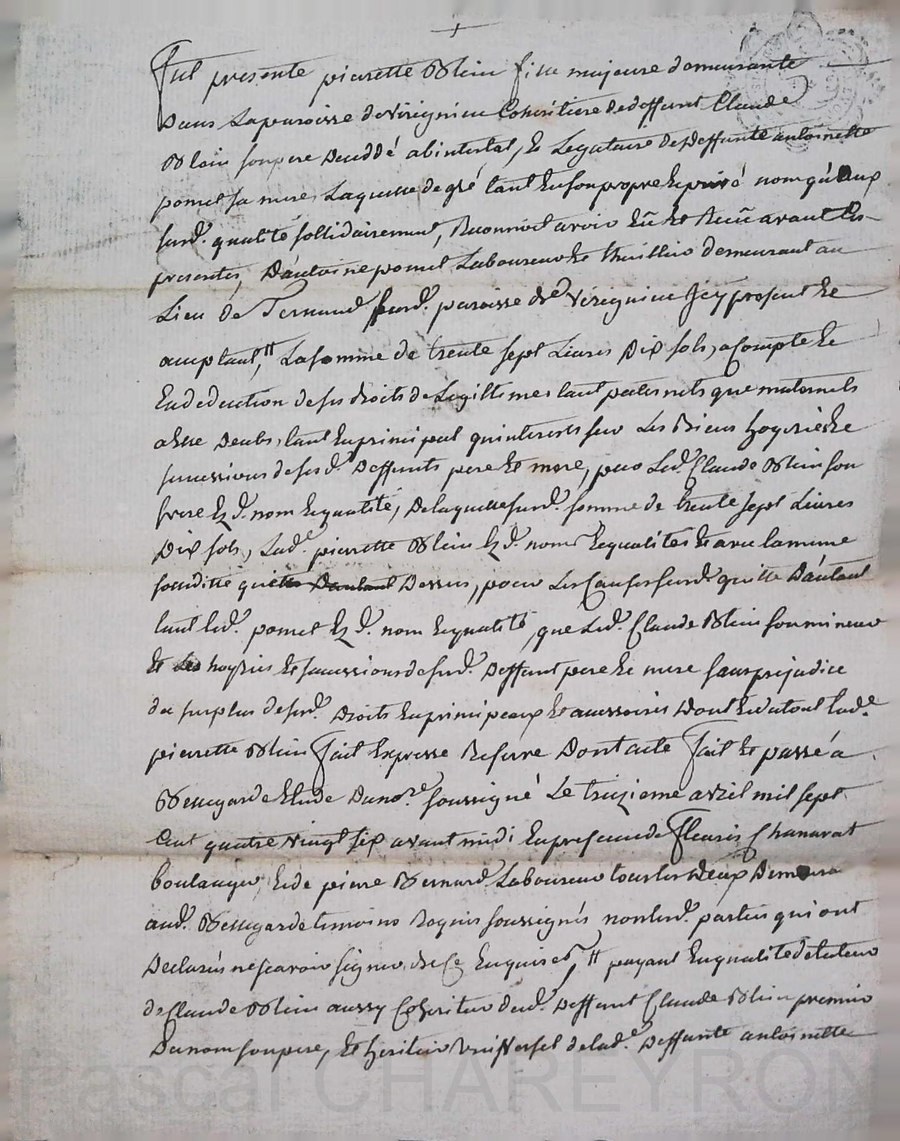 Fut presente pierette Blein fille majeure demeurante
Dans La paroisse de Vérégnieu Cohéritiere de deffunt Claude
Blein son pere Deceddé abintestat, Et Legataire de Deffunte antoinette
pomet sa mere Laquelle de gré tant En son propre Et privé nom qu'aux
susd. qualité sollidairement, Reconnoit avoir Eû Et Reçû avant Les
presentes, D'antoine pomet Laboureur Et thuillier demeurant au
Lieu de Ternand susd. paroisse de Vérégnieu Icy present Et
acceptant,# La somme de trente sept Livres Dix sols, a Compte Et
En deduction de ses droits de Legittimes tant paternels que maternels
a Elle Deubs, tant En principal qu'interests sur Les Biens hoyerie Et
successions de sesd. Deffunts pere Et mere, par Led. Claude Blein son
frere Ezd. nom Et qualité, De laquelle susd. somme de trente sept Livres
Dix sols, Lade. pierrette Blein Ezd. noms Et qualités Et avec la meme
solidité que Dessus, pour Les Causes susd. quitte D'autant
tant Led. pomet Ezd. nom Et qualité, que Led. Claude Blein son mineur
Et Les hoyries Et successions de sesd. Deffunt pere Et mere sans prejudice
du surplus de sesd. Droits En principaux Et accessoires Dont Et du tout Lade.
pierrette Blein fait Expresse Reserve Dont acte fait Et passé a
Bellegarde Etude Du nore. soussigné Le treizieme avril mil sept
Cent quatre vingt six avant midi En presence de fleuris Chanavat
boulanger, Et de pierre Bernard Laboureur tous les Deux Demeurant
aud. Bellegarde temoins Requis soussignés non lesd. parties qui ont
Declarés ne scavoir signer, de Ce Enquises, # payant En qualité de tuteur
de Claude Blein aussy Cohéritier dud. Deffunt Claude Blein premier
Du nom son pere, Et héritier Universel de lade. Deffunte antoinette
Pascal CHAREYRON